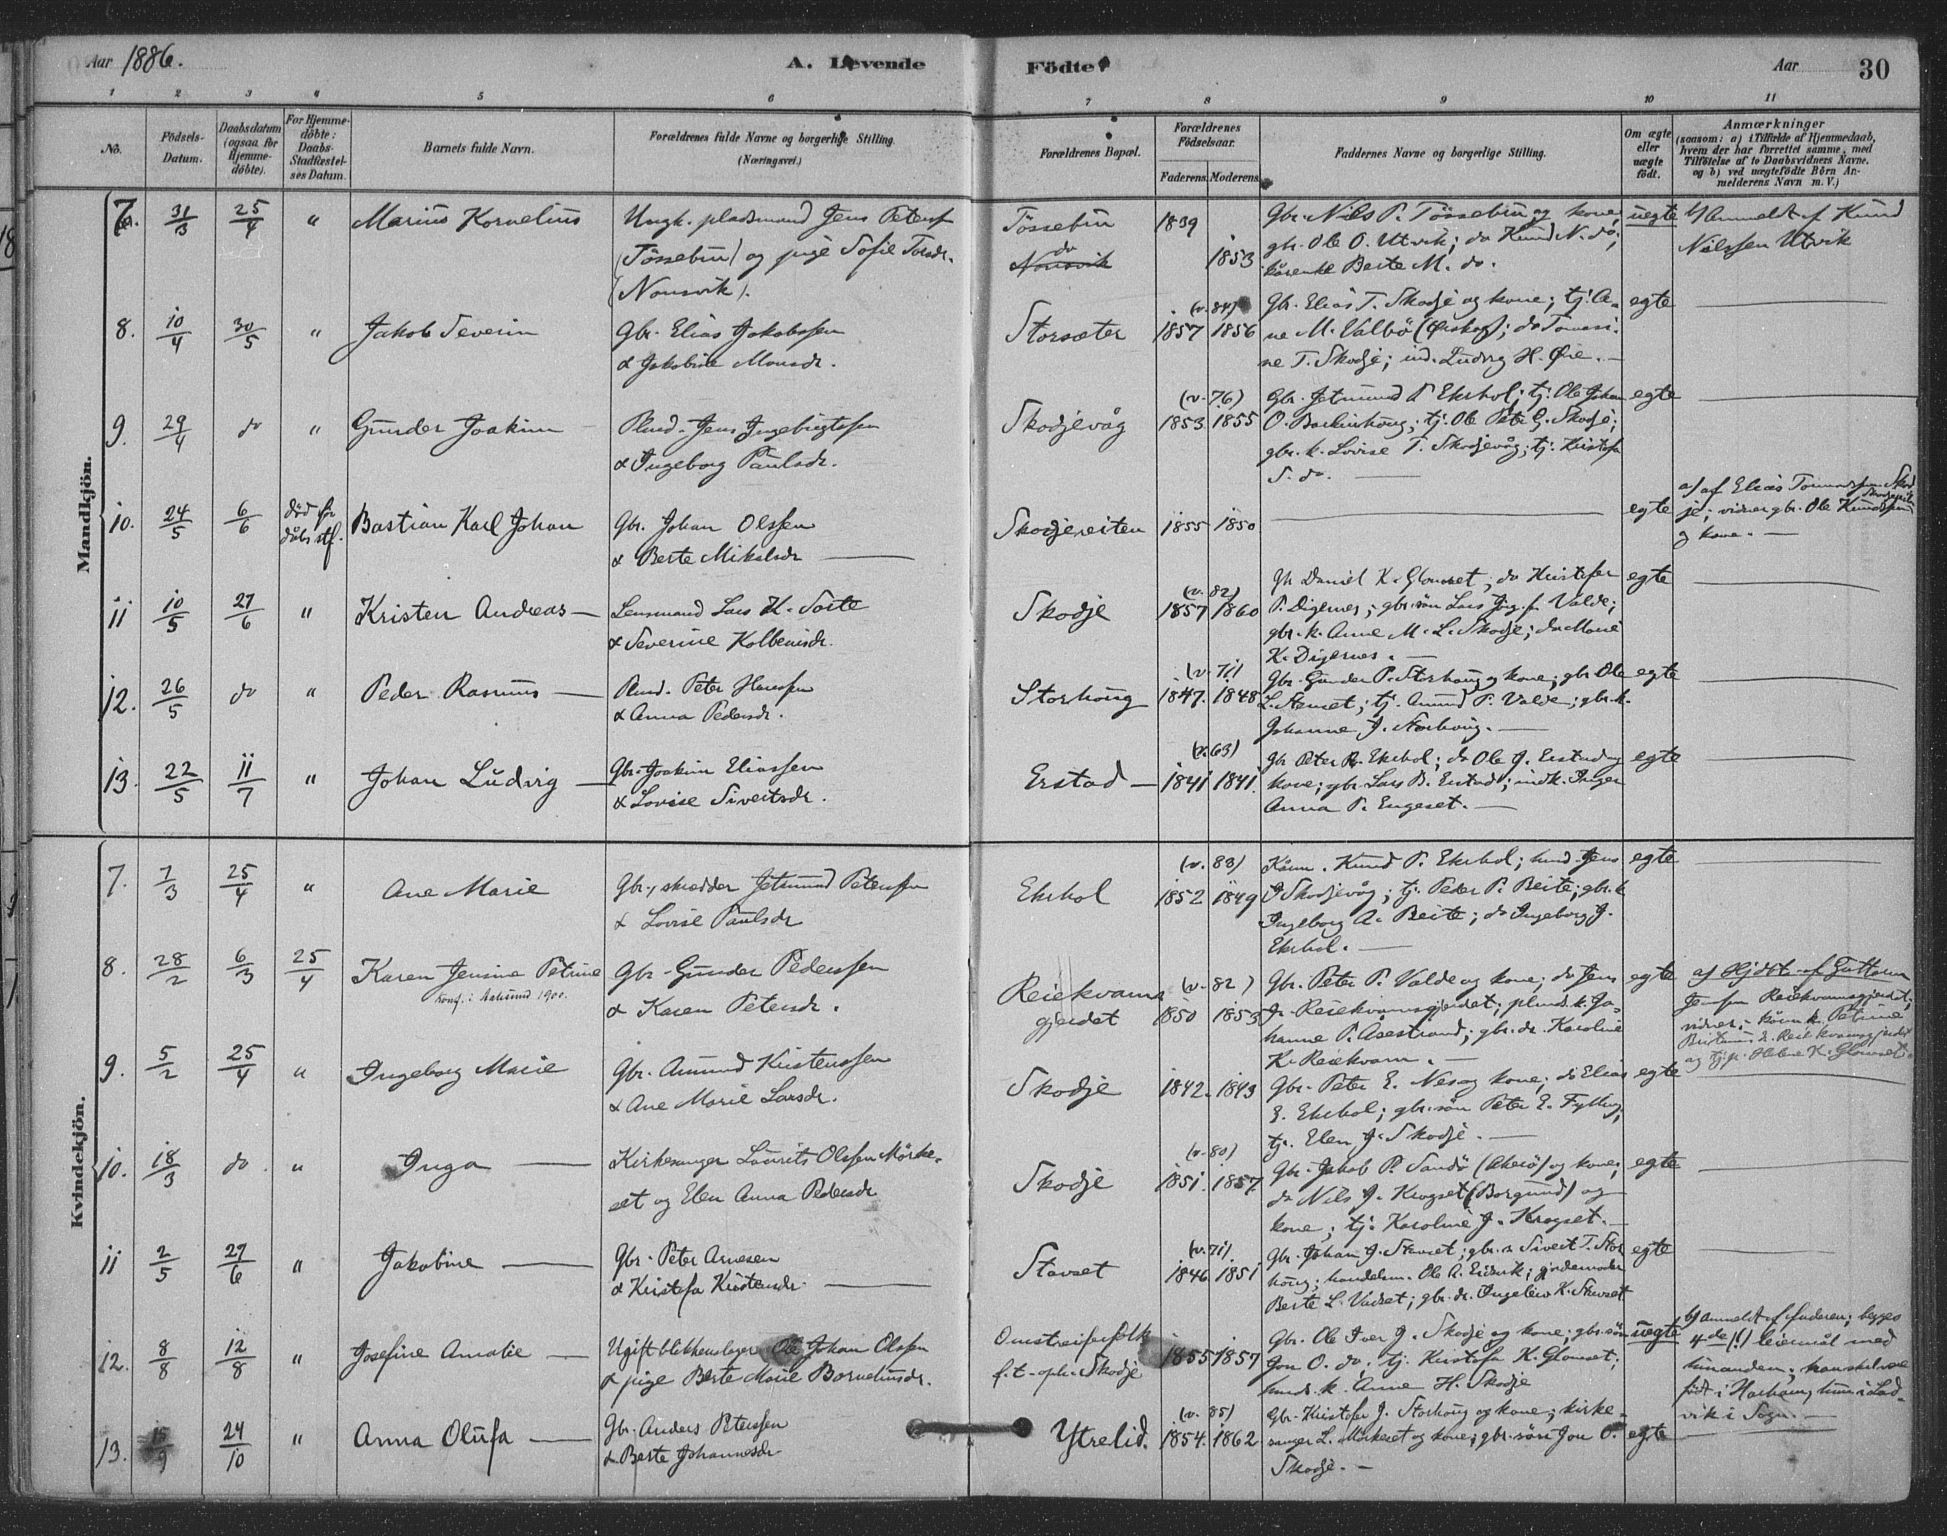 Aar 1886.
A. Levende Födte
Aar 30
1 2 3 4 5 6 7 8 9 10 11
No.
Födsels-Datum.
Daabsdatum (ogsaa for Hjemme-döbte).
For Hjemme-döbte: Daabs-Stadfæstel-ses Datum.
Barnets fulde Navn.
Forældrenes fulde Navne og borgerlige Stilling.
(Næringsvei.)
Forældrenes Bopæl.
Forældrenes Födselsaar.
Faderens. Moderens.
Faddernes Navne og borgerlige Stilling.
Om ægte eller uægte födt.
Anmærkninger
(saasom: a) i Tilfælde af Hjemmedaab,
hvem der har forrettet samme, med
Tilföielse af to Daabsvidners Navne.
og b) ved uægtefödte Börn An-
melderens Navn m. V.)
Mandkjön.
7. 31/3 25/4 " Marius Kornelius
Ungk. pladsmand Jens Peters
(Tössebru) og pige Sofie
(Nonsvik).
Tössebru
do
Nonsvik
1839
1853
Gbr. Nils P. Tössebru og kone,
gbr. Ole O. Utvik; do Knud N. do;
Berte M. do.
uegte
b) Anmeldt af Knud
Nilssen Utvik
8. 10/4 30/5 " Jakob Severin
Gbr. Elias Jakobssen
& Jakobine Monsdr.
Storsæter
(v. 84)
1857 1856
Gbr. Elias T. Skodje og kone; tj. A-
ne M. Valbö (Örskog); do Tomasi-
ne T. Skodje; ind. Ludvig H. Öie. —
egte
9. 29/4 do " Gunder Joakim
Plmd. Jens Ingebrigtsen
& Ingeborg Paulsdr.
Skodjevåg
(v. 76)
1853 1855
Gbr. Jetmund P. Ekrhol; tj. Ole Johan
O. ; tj. Ole Peter G. Skodje;
gbr. k. Lovise T. Skodjevåg; tj. Kristofa
S. do. —
egte
10. 24/5 6/6 död för dåbs stf. Bastian Karl Johan
Gbr. Johan Olssen
& Berte Mikalsdr —
Skodjereiten
1855 1850
egte
a) af Elias Skod
je; vidner gbr. Ole Knudssen
og kone. —
11 10/5 27/6 " Kristen Andreas —
Lensmand Lars K. Solte
& Severine Kolbeinsdr.
Skodje
(v. 82)
1857 1860
Gbr Daniel K. Glomset, do Kristofer
P. Digernes; gbr. sön Lars Jörg. f. Valde;
gbr. k. Anne M. L. Skodje; do Marie
K. Digernes. —
egte
12. 26/5 do " Peder Rasmus —
Plmd. Peter Hanssen
& Anna Pedersdr.
Storhoug
(v. 71)
1847. 1848
Gbr. Gunder P. Storhoug og kone; gbr Ole
L. Stenset; tj. Amund P. Valde; gbr. k.
Johanne J. Storhoug. —
egte
13. 22/5 11/7 " Johan Ludvig —
Gbr. Joakim Eliassen
& Lovise Sivertsdr.
Erstad —
(v. 63)
1841 1841.
Gbr Peter R. Ekrhol; do Ole J. Erstad og
kone; gbr. Lars B. Erstad; indk. Inger
Anna P. Engeset. —
egte
Kvindekjön.
7. 7/3 25/4 " Ane Marie
Gbr., skredder Jetmund Peterssen
& Lovise Paulsdr
Ekrhol
(v. 83)
1852 1849
Kårm. Knud P. Ekrhol; husm. Jens
J Skodjevåg; tj. Peder P. Beite; gbr. k
Ingeborg A. Beite; do Ingeborg J.
Ekrhol. —
egte
8. 28/2 6/3 25/4 Karen Jensine Petrine
konf. i Aalesund 1900.
Gbr. Gunder Pederssen
& Karen Petersdr.
Reiekvams
gjerdet
(v. 82)
1850 1853
Gbr. Peter P. Valde og kone; do Jens
J. Reiekvamsgjerdet; plmds. k. Jo-
hanne P. Åsestrand; gbr. dr. Karoline
K. Reiekvam. —
egte
a) Hjdbt. af Guttorm
Jenssen Reiekvamsgjerdet;
vidner: kårm k. Petrine
Reiekvamsgjerdet
og tj.p. Helene K. Glomset.
9. 5/2 25/4 " Ingeborg Marie
Gbr. Amund Kristenssen
& Ane Marie Larsdr.
Skodje
1842. 1843
Gbr. Peter E. Nes og kone; do Elias
E. Ekrhol; gbr. sön Peter E. Fylling,
tj. Elen J. Skodje. —
egte
10. 18/3 do. " Inga —
Kirkesanger Laurits Olssen Mörke-
set og Elen Anna Pedersdr
Skodje
(v. 80)
1851. 1857.
Gbr. Jakob P. Sandö (Akerö) og kone;
do Nils J. Krogset (Borgund) og
kone; tj. Karoline J. Krogset. —
egte
11 2/5 27/6 " Jakobine —
Gbr. Peter Arnesen
& Kristofa Kristensdr. —
Stavset
(v. 71)
1846 1851
Gbr. Johan J. Stavset; gbr. s. Sivert T. Stor
houg; handelsm. Ole A. Eidsvik; gjordemoder
Berte L. Vadset; gbr. dr. Ingeleiv K. Stavset
egte
12. 8/8 12/8 " Josefine Amalie —
Ugift blikkenslager Ole Johan Olssen
& pige Berte Marie Bornelinsdr.
Omstreiferfolk
f. t. oph. Skodje
1855 1857
Gbr. Ole Iver J. Skodje og kone; gbr. sön
Jon O. do. tj. Kristofa K. Glomset;
husm. k. Anne H. Skodje
uegte
b) anmeldt af faderen; begges
4de (!) leiermål med
hinanden; han skal være
födt i Haram, hun i Lad-
vik i Sogn. —
13. 15/9 24/10 " Anna Olufa —
Gbr. Anders Peterssen
& Berte Johannesdr
Ytrelid.
(v. 85)
1854. 1862
Gbr. Kristofer J. Storhoug og kone; kirke-
sanger L. Mörkeset og kone; gbr. sön Jon O.
Skodje. —
egte